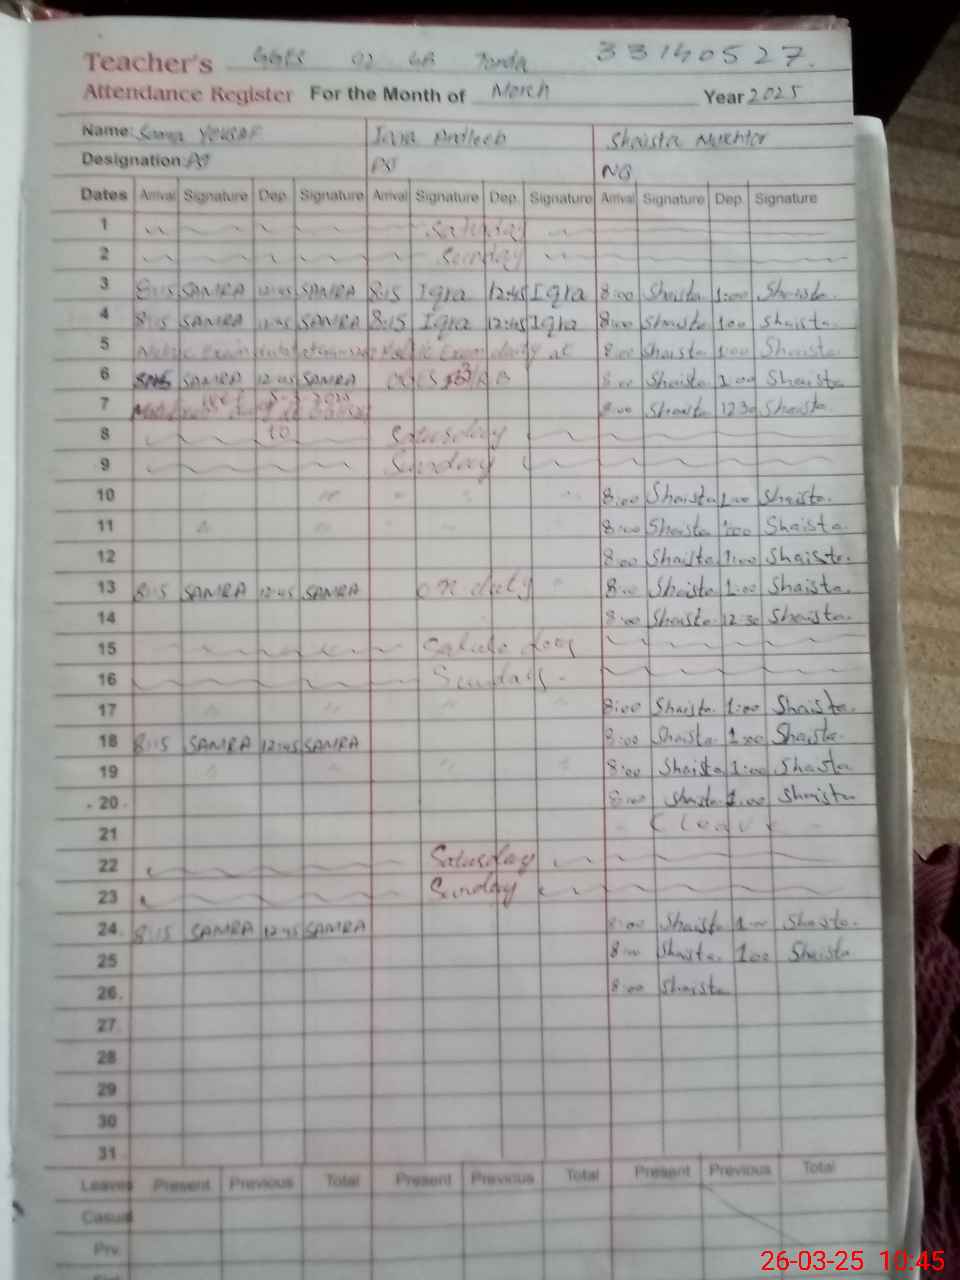 Teacher's GGES 92 GB Janda 33140527.
Attendance Register For the Month of March Year 2025
Name: Samra YOUSAF Iqra Shaista Mukhtar
Designation:
Dates Arrival Signature Dep. Signature Arrival Signature Dep. Signature Arrival Signature Dep. Signature
1 Saturday
2 Sunday
3 8:15 SAMRA 12:45 SAMRA 8:15 Iqra 12:45 Iqra 8:00 Shaista 1:00 Shaista.
4 8:15 SAMRA 12:45 SAMRA 8:15 Iqra 12:45 Iqra 8:00 Shaista 1:00 Shaista.
5 Matric Exam Matric Exam duty at 8:00 Shaista 1:00 Shaista.
6 SAMRA 12:45 SAMRA 8:00 Shaista 1:00 Shaista
7 8:00 Shaista 12:30 Shaista.
8 to Saturday
9 Sunday
10 8:00 Shaista 1:00 Shaista.
11 8:00 Shaista 1:00 Shaista.
12 8:00 Shaista 1:00 Shaista.
13 8:15 SAMRA 12:45 SAMRA on duty 8:00 Shaista 1:00 Shaista.
14 8:00 Shaista 12:30 Shaista.
15
16 Sunday
17 8:00 Shaista 1:00 Shaista.
18 8:15 SAMRA 12:45 SAMRA 8:00 Shaista 1:00 Shaista.
19 8:00 Shaista 1:00 Shaista
20 8:00 Shaista 1:00 Shaista
21 C leave
22 Saturday
23 Sunday
24 8:15 SAMRA 12:45 SAMRA 8:00 Shaista 1:00 Shaista.
25 8:00 Shaista 1:00 Shaista
26 8:00 Shaista
27
28
29
30
31
Leaves Present Previous Total Present Previous Total Present Previous Total
Casual
Prv.
26-03-25 10:45